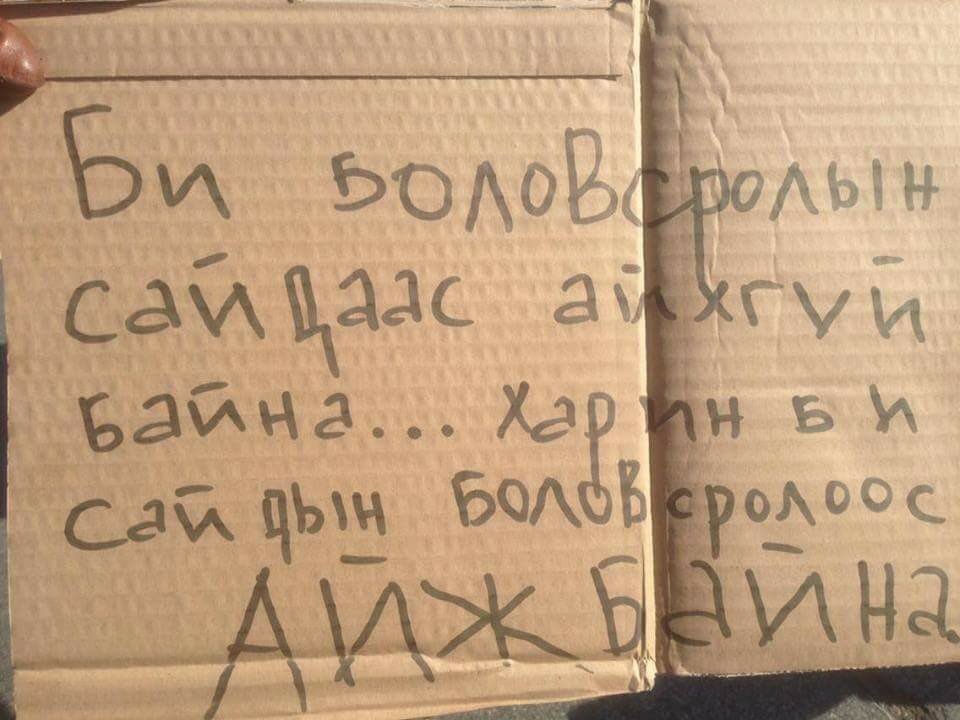 Би боловсролын
сайдаас айхгүй
байна... Харин би
сайдын боловсролоос
АЙЖ БАЙНА.